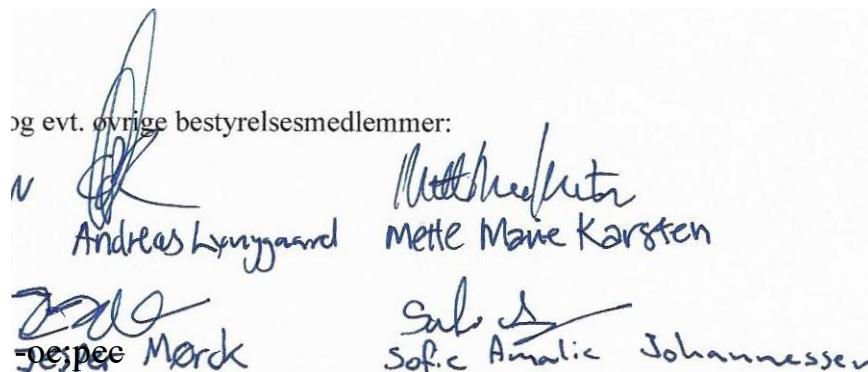 og evt. øvrige bestyrelsesmedlemmer:
Andreas Lyngygaard Mette Marie Karsten
Mørck Sofie Amalie Johannessen